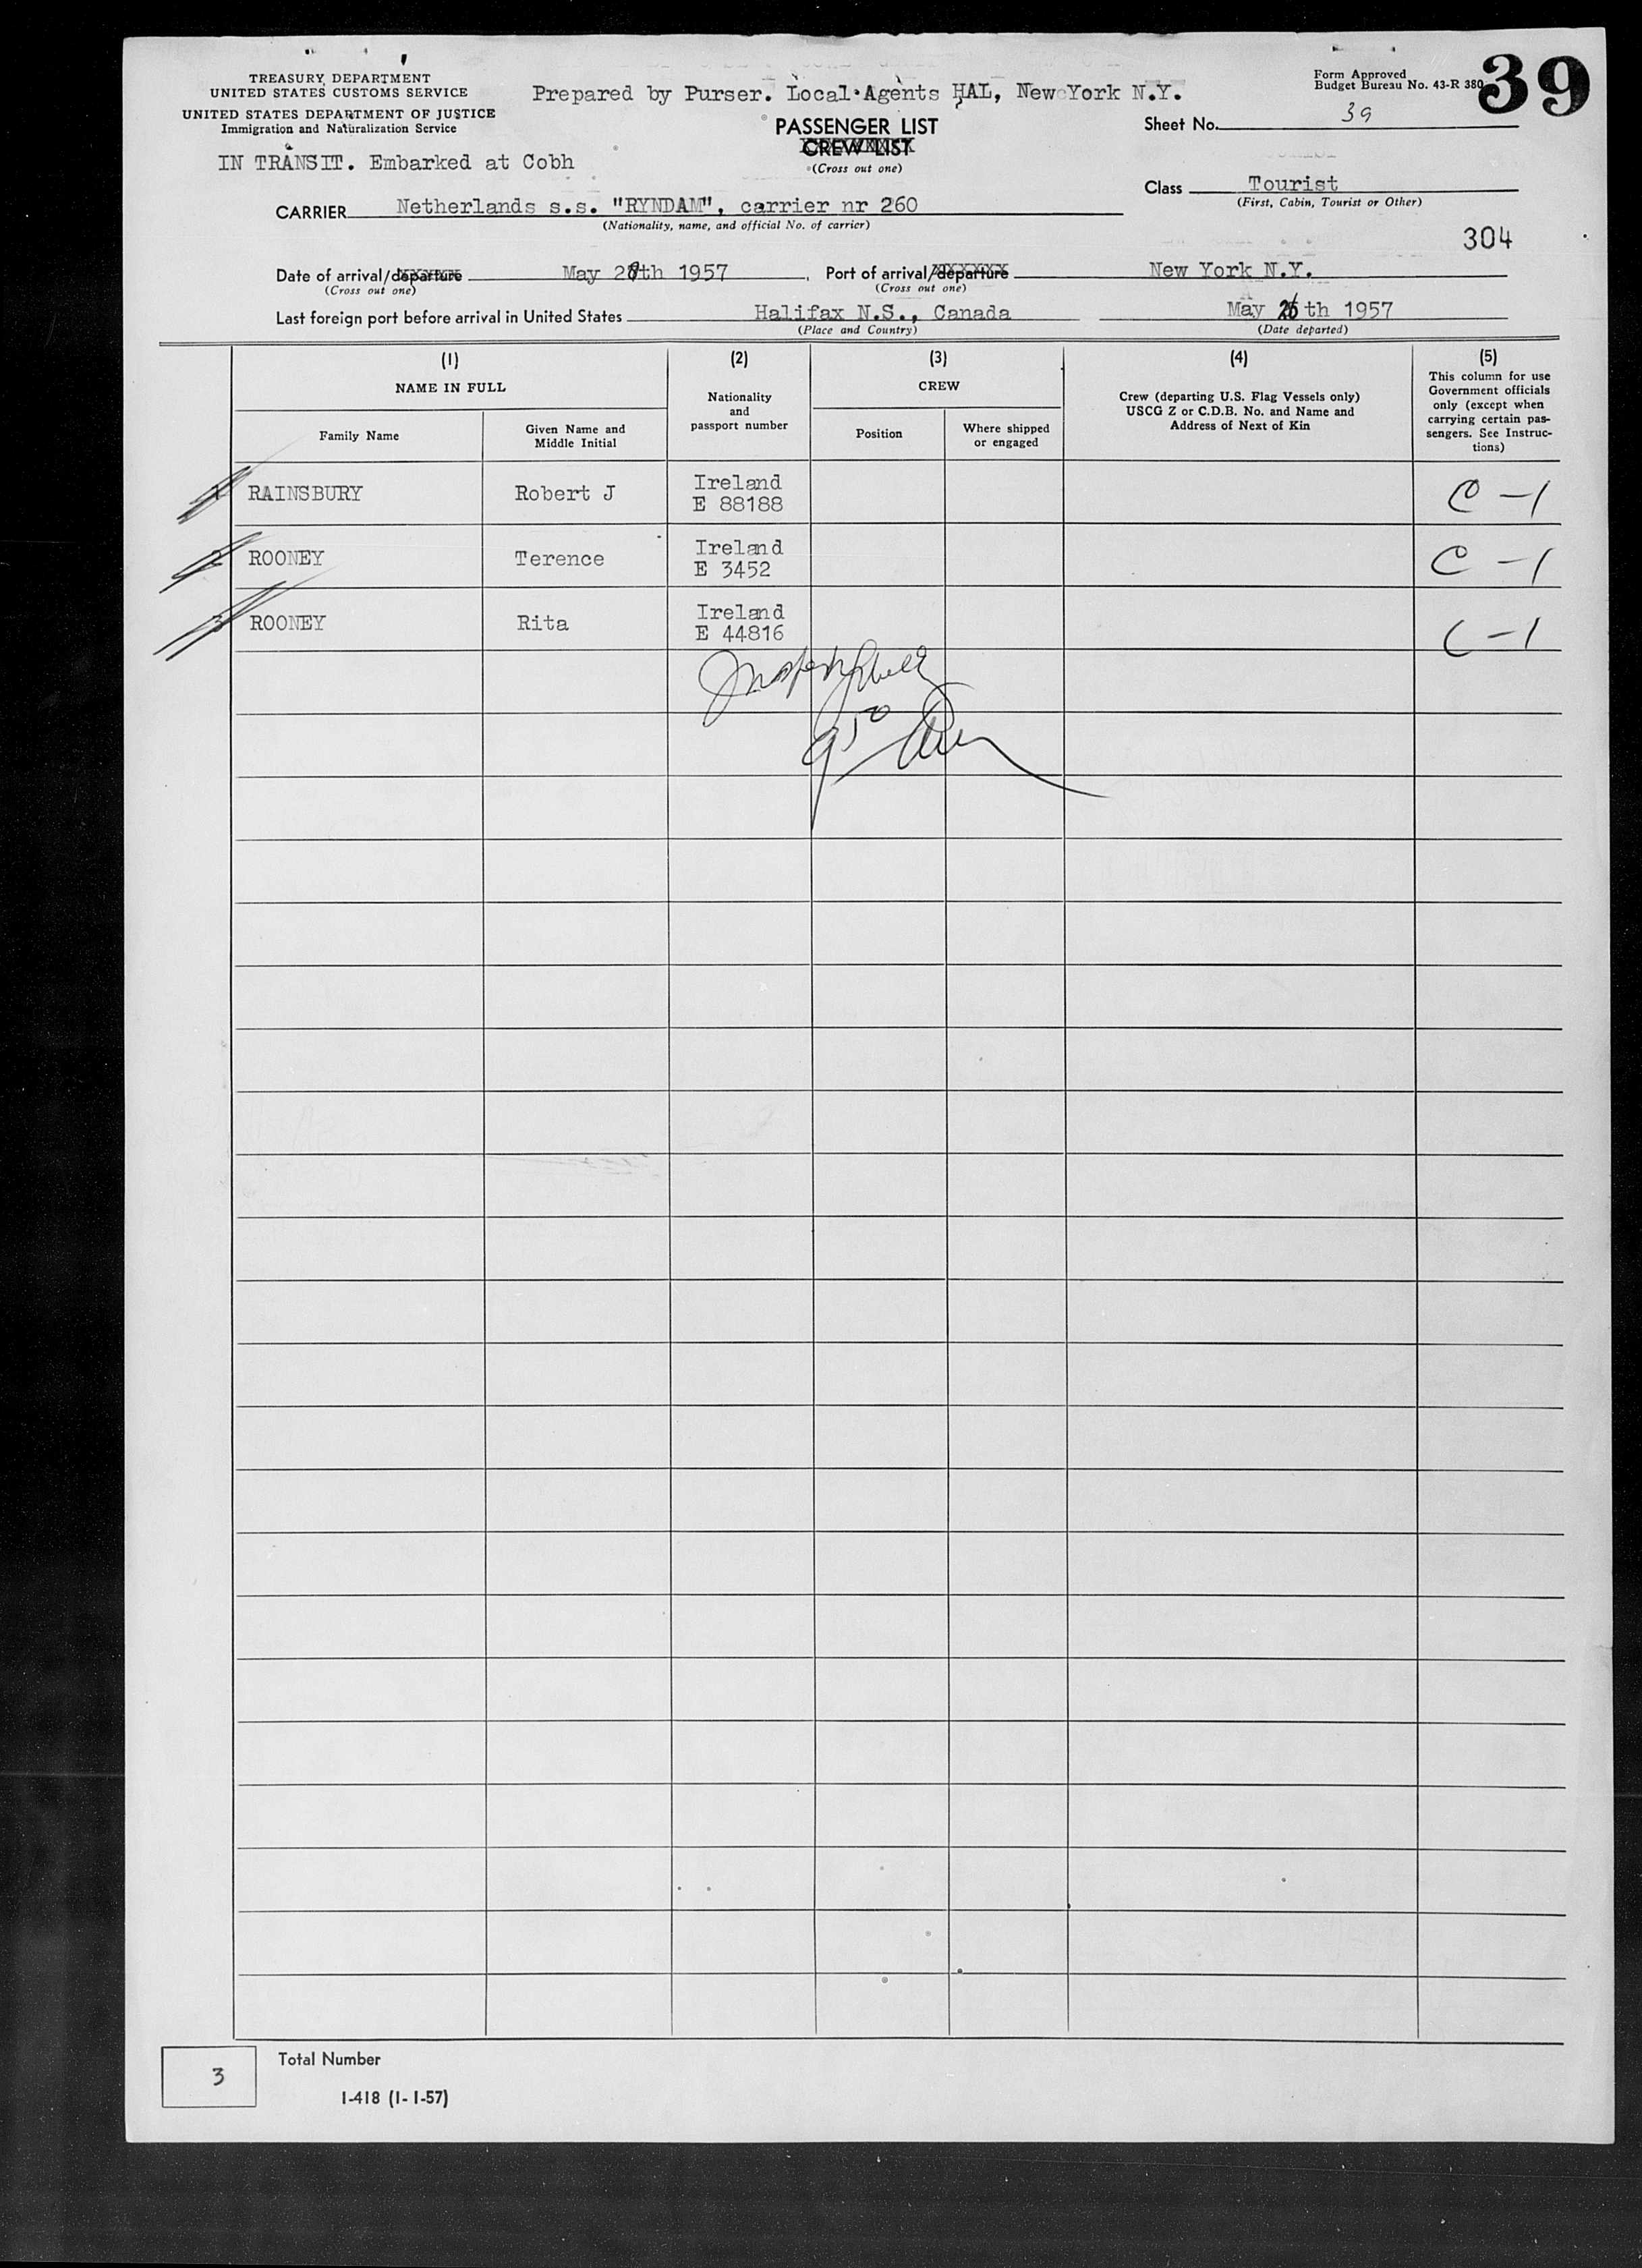 TREASURY DEPARTMENT
UNITED STATES CUSTOMS SERVICE
UNITED STATES DEPARTMENT OF JUSTICE
Immigration and Naturalization Service
Prepared by Purser. Local Agents HAL, New York N.Y.
PASSENGER LIST
CREW LIST
(Cross out one)
Form Approved
Budget Bureau No. 43-R 380
39
Sheet No. 39
IN TRANSIT. Embarked at Cobh
Class Tourist
(First, Cabin, Tourist or Other)
CARRIER Netherlands s.s. "RYNDAM", carrier nr 260
(Nationality, name, and official No. of carrier)
304
Date of arrival/departure May 28th 1957, Port of arrival/departure New York N.Y.
(Cross out one) (Cross out one)
Last foreign port before arrival in United States Halifax N.S., Canada May 26th 1957
(Place and Country) (Date departed)
(1) (2) (3) (4) (5)
NAME IN FULL
Family Name
Given Name and
Middle Initial
Nationality
and
passport number
CREW
Position
Where shipped
or engaged
Crew (departing U.S. Flag Vessels only)
USCG Z or C.D.B. No. and Name and
Address of Next of Kin
This column for use
Government officials
only (except when
carrying certain pas-
sengers. See Instruc-
tions)
1 RAINSBURY Robert J Ireland C-1
E 88188
2 ROONEY Terence Ireland C-1
E 3452
3 ROONEY Rita Ireland C-1
E 44816
3 Total Number
I-418 (1-1-57)